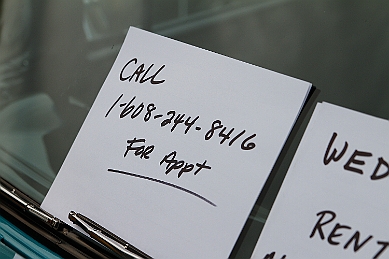 CALL
1-608-244-8416
FOR APPT
WED
RENT